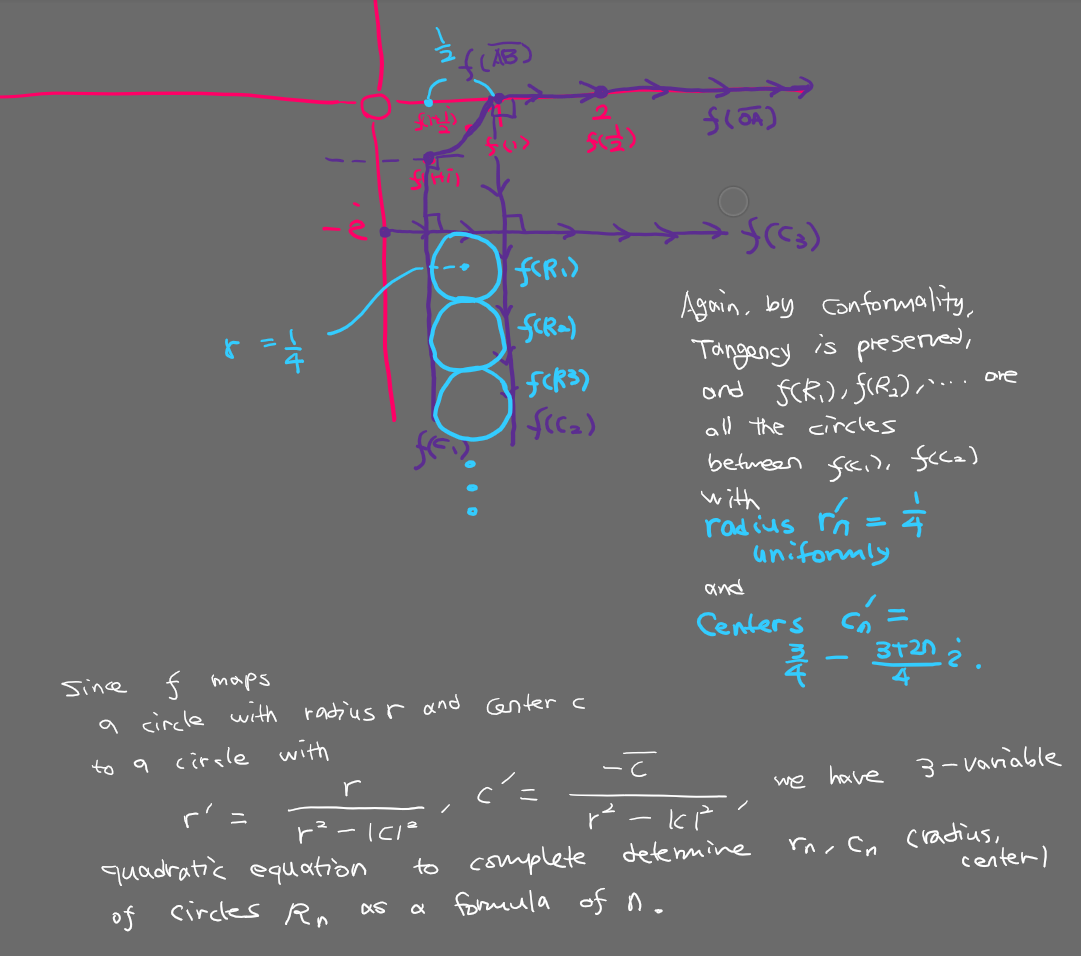 1/2
f(\overline{AB})
f((1+i)/2)
1
f(1)
2
f(1/2)
f(\overline{OA})
f(1+i)
-i
f(C₃)
r = 1/4
f(R₁)
f(R₂)
f(R3)
f(C₁)
f(C₂)
Again, by conformality,
Tangency is preserved,
and f(R₁), f(R₂), .... are
all the circles
between f(C₁), f(C₂)
with
radius rn' = 1/4
uniformly
and
Centers cn' =
3/4 - (3+2n)/4 i.
Since f maps
a circle with radius r and center c
to a circle with
r' = r/(r² - |c|²), c' = -\overline{c}/(r² - |c|²), we have 3-variable
quadratic equation to complete determine rn, cn (radius,
center)
of circles Rn as a formula of n.